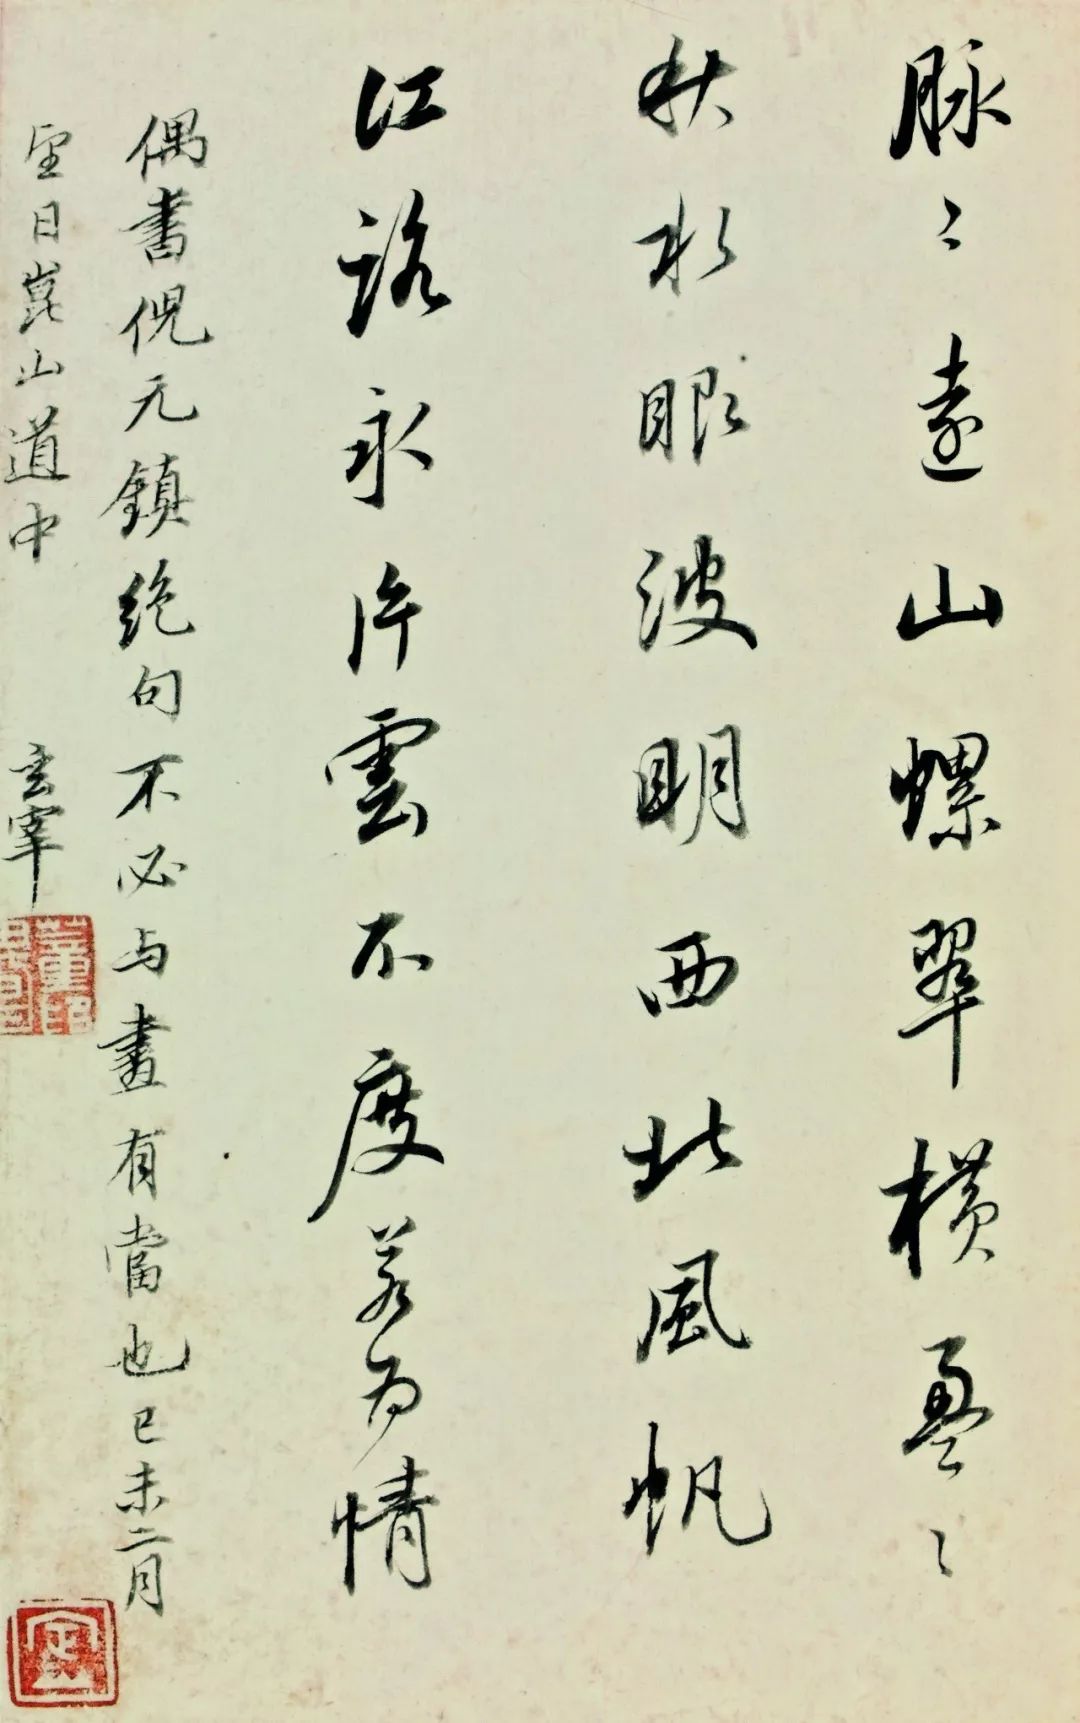 脉〻遠山螺翠横盈〻
秋水眼波明西北風帆
江路永片雲不度若为情
偶書倪元鎮絶句不必与畫有當也己未二月
望日崑山道中
玄宰